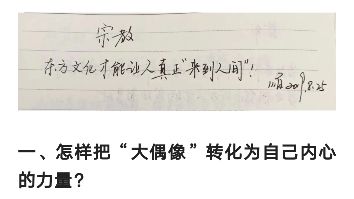 宗教
东方文化才能让人真正“来到人间”！
2019.8.25
一、怎样把“大偶像”转化为自己内心
的力量？